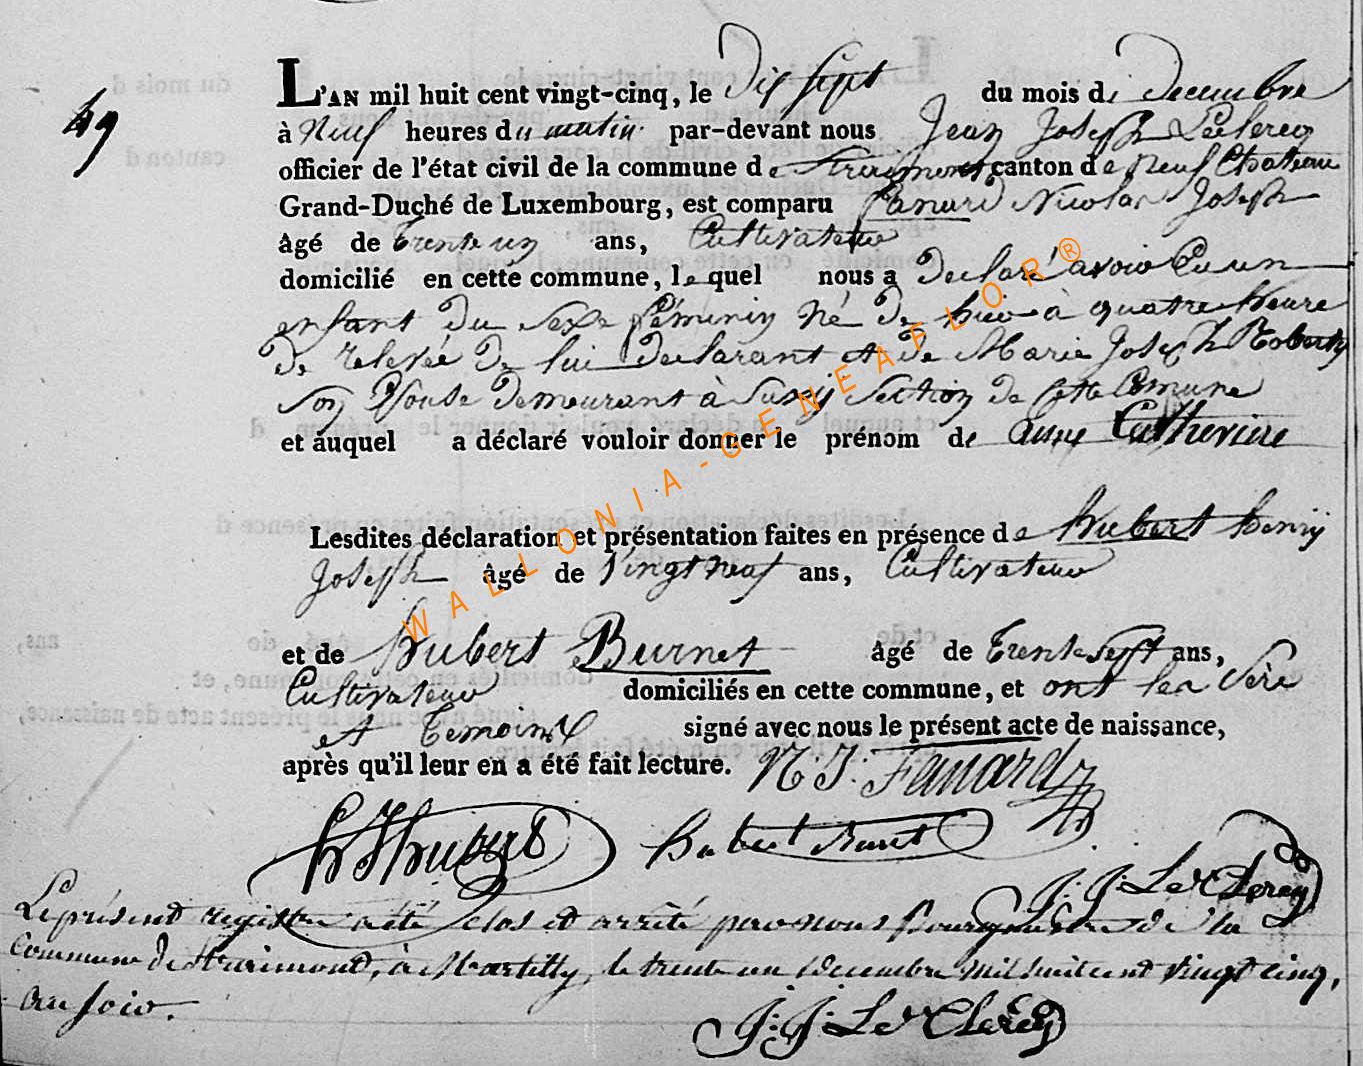 49
L'AN mil huit cent vingt-cinq, le Dix sept du mois de Decembre
à Neuf heures du matin par-devant nous Jean Joseph Leclercq
officier de l'état civil de la commune de Straimont canton de Neuf Chateau
Grand-Duché de Luxembourg, est comparu Fanard Nicolas Joseph
âgé de trente un ans, Cultivateur
domicilié en cette commune, lequel nous a declaré avoir Eu un
enfant du Sexe féminin Né de hier à quatre heure
de relevée de lui declarant et de Marie Joseph
son Epouse demeurant à Suxy Section de cette Comune
et auquel a déclaré vouloir donner le prénom de Anne Catherine
Lesdites déclaration et présentation faites en présence de Hubert henry
Joseph âgé de vingt neuf ans, Cultivateur
et de hubert Burnet âgé de Trente Sept ans,
Cultivateur domiciliés en cette commune, et ont les Père
et Temoins signé avec nous le présent acte de naissance,
après qu'il leur en a été fait lecture. N. J. Fanard
h J hubert hubert Burnet
J. J. Le Clercq
Le présent registre a été clos et arrêté par nous Bourgmestre de la
Commune de Straimont, à Martilly, le trente un decembre mil huit cent vingt cinq,
au soir.
J. J. Le Clercq
WALLONIA-GENEAFLOR®